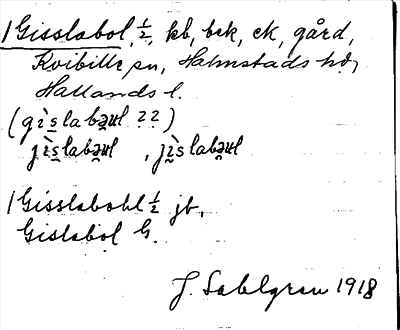 1 Gisslabol, ½, kb, bek, ek, gård,
Kvibille sn, Halmstads hd,
Hallands l.
(gìslaba̯ɯl ??)
jìslaba̯ɯl, jìslaba̯ɯl
1 Gisslabohl ½ jb,
Gislabol G.
J. Sahlgren 1918